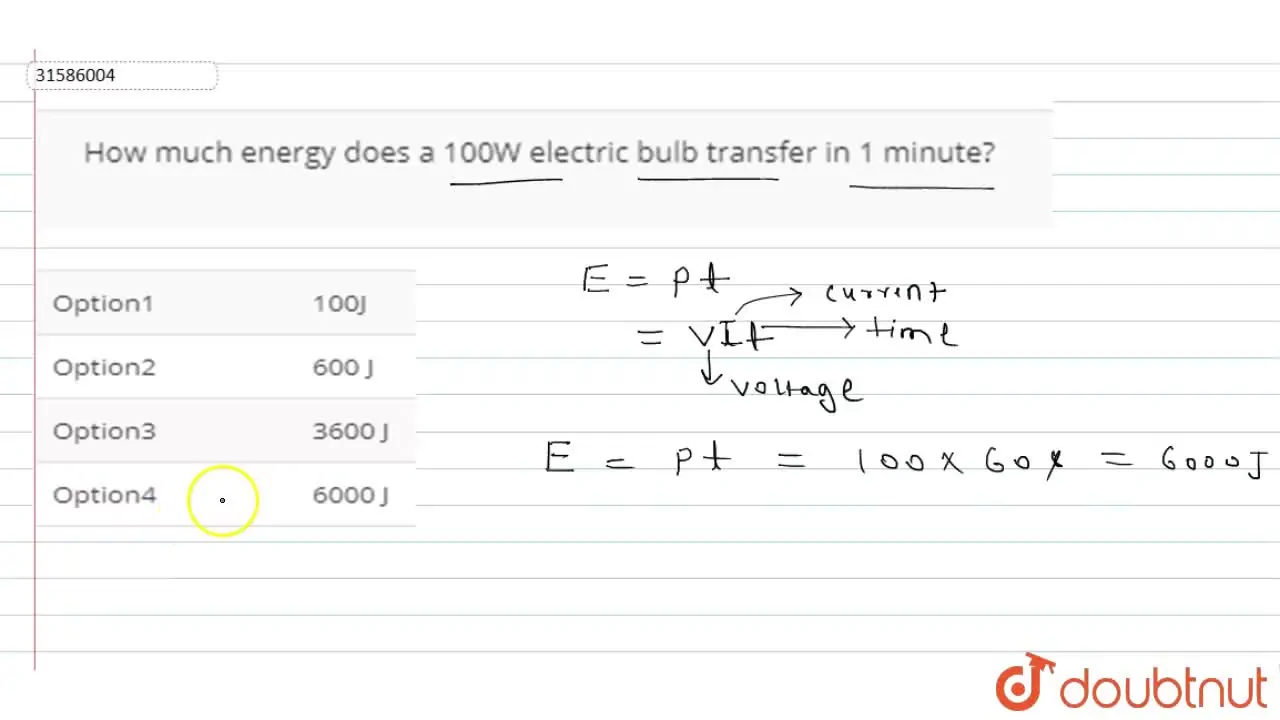 31586004
How much energy does a 100W electric bulb transfer in 1 minute?
Option1 100J
Option2 600 J
Option3 3600 J
Option4 6000 J
E = pt
= VIt
current
time
voltage
E = pt = 100 x 60 = 6000J
doubtnut